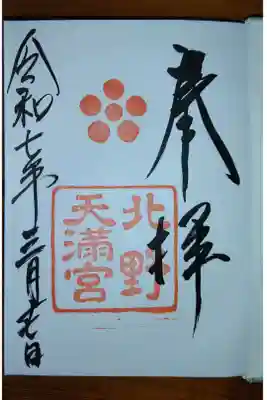 奉拝
北野
天満宮
令和七年三月十七日